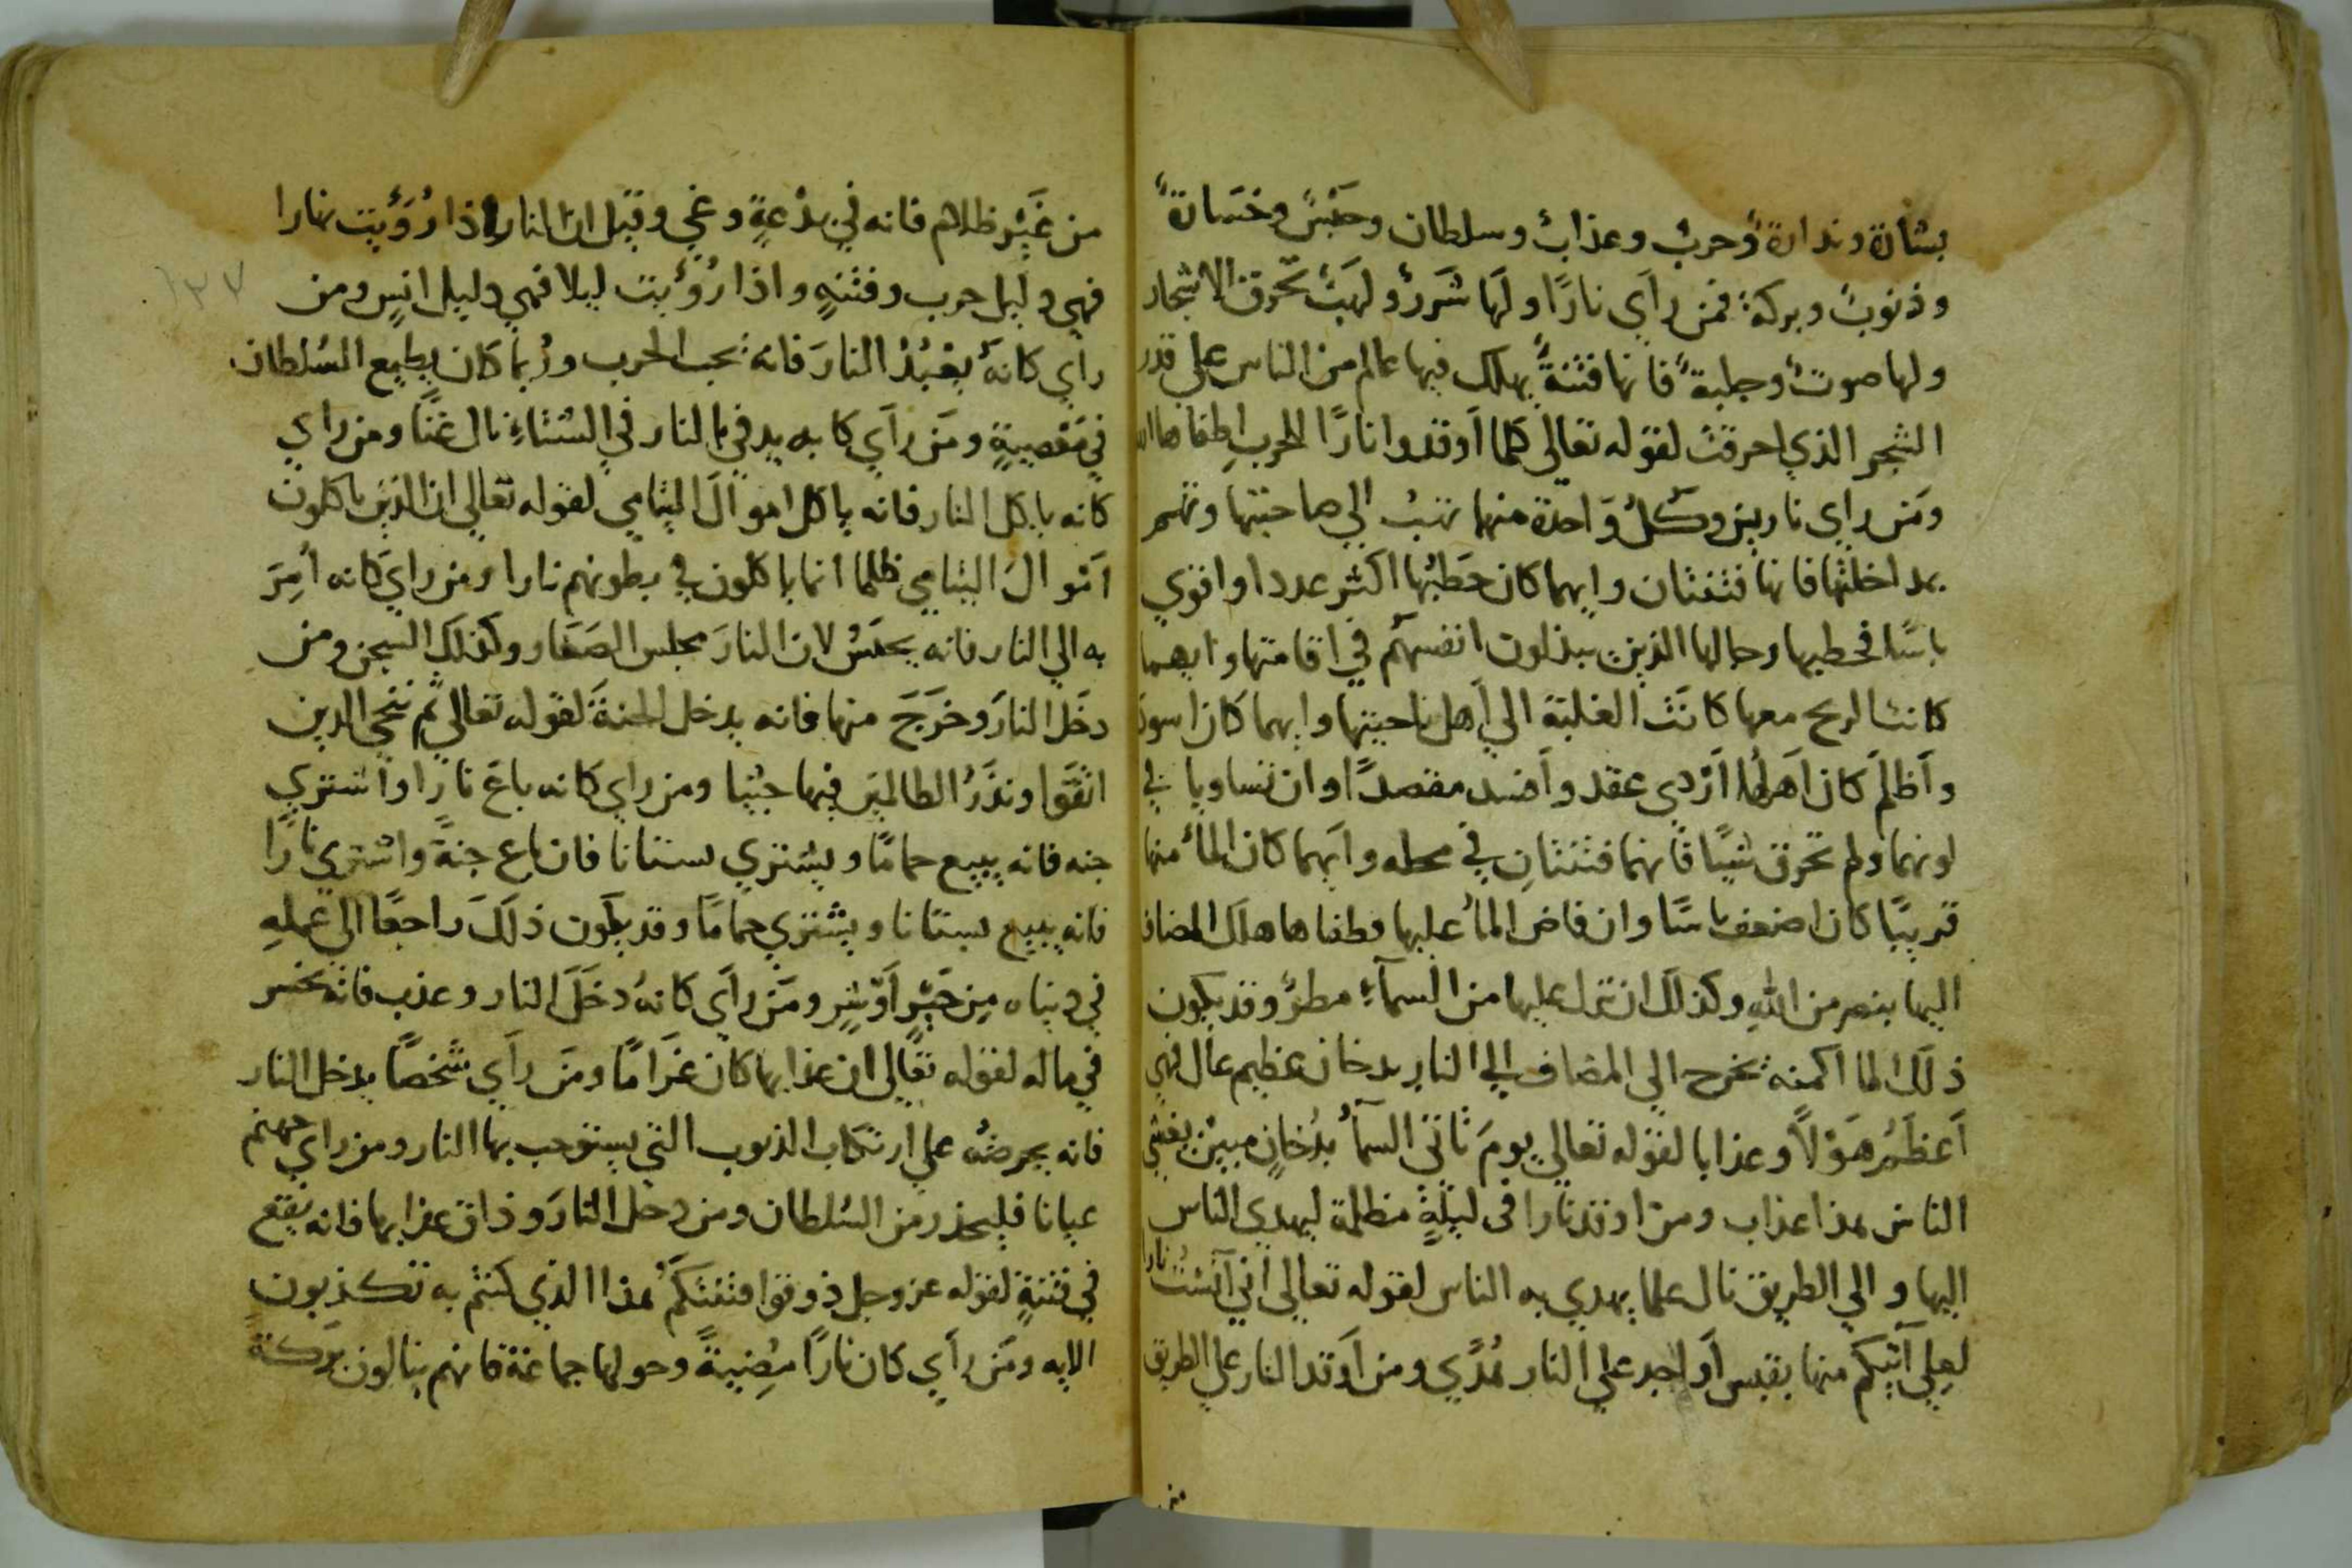 بشارة ونذارة وحرب وعذاب وسلطان وحبس وخسارة
وذنوب وبركة فمن رأي نارًا ولها شرر ولهب تحرق الاشجار
ولها صوت وجلبة فانها فتنة يهلك فيها عالم من الناس علي قدر
الشجر الذي احرقت لقوله تعالى كلما أوقدوا نارًا للحرب اطفاها الله
ومن راي نارين وكل واحدة منهما تهب الي صاحبتها وتهم
بمداخلتها فانها فتنتان وايهما كان حطبها اكثر عددا واقوي
باسًا فحطبها رجالها الذين يبذلون انفسهم في اقامتها وايهما
كانت الريح معها كانت الغلبة الي أهل ناحيتها وايهما كان اسود
وأظلم كان أهلها أردي عقد وأفسد مقصدًا وان تساويا في
لونهما ولم تحرق شيًا فانهما فتنتان في محله وأيهما كان الماء منها
قريبًا كان اضعف باسًا وان فاض الماء عليها فطفاها هلك المضاف
اليها بنصر من الله وكذلك ان نزل عليها من السماء مطر وقد يكون
ذلك لما اكمنه تخرج الي المضاف الي النار بدخان عظيم عال فهي
أعظم هولًا وعذابا لقوله تعالي يوم تاتي السماء بدخان مبين يغشي
الناس هذا عذاب ومن اوقد نارا في ليلة مظلمة ليهدي الناس
اليها والي الطريق نال علما يهدي به الناس لقوله تعالي اني آنست نارا
لعلي آتيكم منها بقبس أو اجد علي النار هدًي ومن أوقد النار علي الطريق
من
من غير ظلام فانه في بدعة وغي وقيل ان النار اذا رؤيت نهارا
فهي دليل حرب وفتنه واذا رؤيت ليلا فهي دليل انس ومن
رأي كانه يعبد النار فانه يحب الحرب وربما كان يطيع السلطان
في معصية ومن رأي كانه يدفي بالنار في الشتاء نال غنًا ومن راي
كانه ياكل النار فانه ياكل اموال اليتامي لقوله تعالي ان الذين ياكلون
اموال اليتامي ظلما انما ياكلون في بطونهم نارا ومن راي كانه أمر
به الي النار فانه يحبس لان النار مجلس الصغار وكذلك السجن ومن
دخل النار وخرج منها فانه يدخل الجنة لقوله تعالي ثم ننجي الذين
اتقوا ونذر الظالمين فيها جثيا ومن راي كانه باع نارا واشتري
جنه فانه يبيع حمامًا ويشتري بستانا فان باع جنة واشتري نارًا
فانه يبيع بستانا ويشتري حمامًا وقد يكون ذلك راجعًا الي عمله
في دنياه من خير أو شر ومن رأي كانه دخل النار وعذب فانه يخسر
في ماله لقوله تعالي ان عذابها كان غرامًا ومن رأي شخصًا يدخل النار
فانه يحرضه علي ارتكاب الذنوب التي يستوجب بها النار ومن راي جهنم
عيانا فليحذر من السلطان ومن دخل النار وذاق عذابها فانه يقع
في فتنة لقوله عز وجل ذوقوا فتنتكم هذا الذي كنتم به تكذبون
الايه ومن رأي كان نارًا مضيئة وحولها جماعة فانهم ينالون بركة
١٣٧